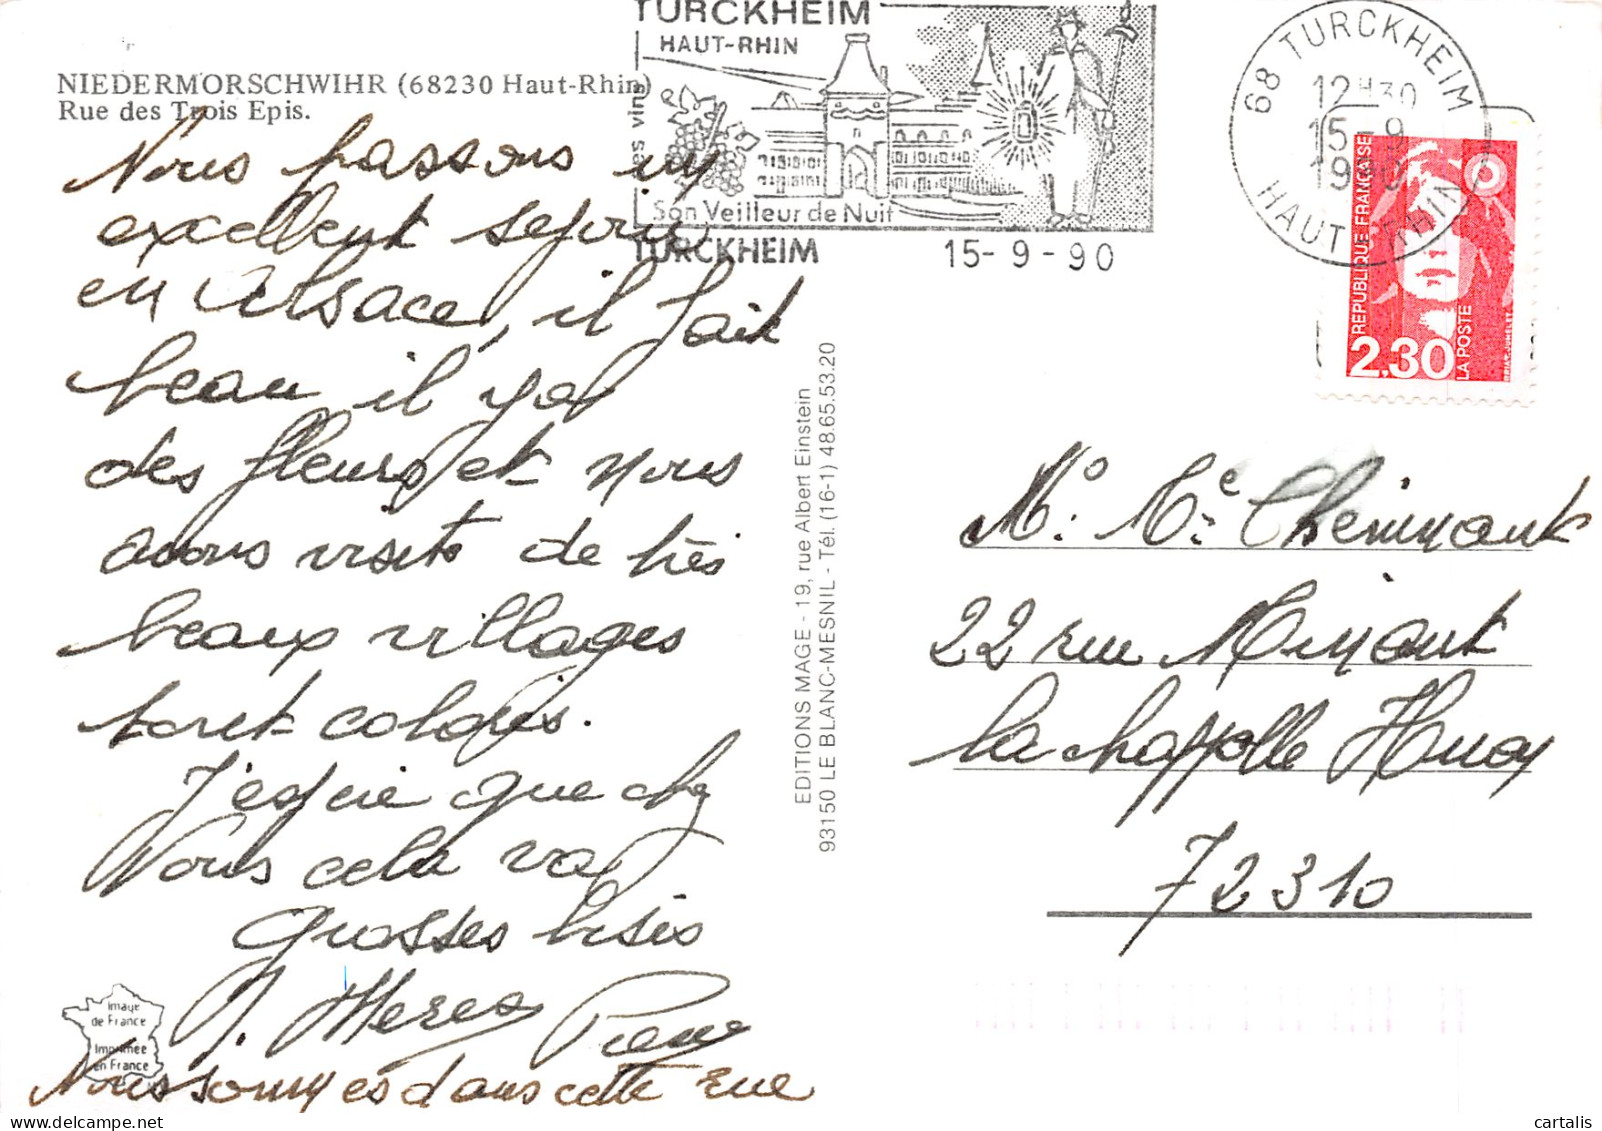 NIEDERMORSCHWIHR (68230 Haut-Rhin)
Rue des Trois Epis.
Nous passons un
excellent sejour
en Alsace, il fait
beau il y a
des fleurs et nous
avons visité de très
beaux villages
tout coloris.
J'espère que chez
Vous cela va
Grosses bises
Nous sommes dans cette rue
Image
de France
Imprimée
en France
EDITIONS MAGE - 19, rue Albert Einstein
93150 LE BLANC-MESNIL - Tél. (16-1) 48.65.53.20
TURCKHEIM
HAUT-RHIN
ses vins
Son Veilleur de Nuit
TURCKHEIM 15-9-90
68 TURCKHEIM
12H30
15-9
1990
HAUT-RHIN
REPUBLIQUE FRANÇAISE
2,30
LA POSTE
Mr. Me Cheminant
22 rue
La Chapelle Huon
72310